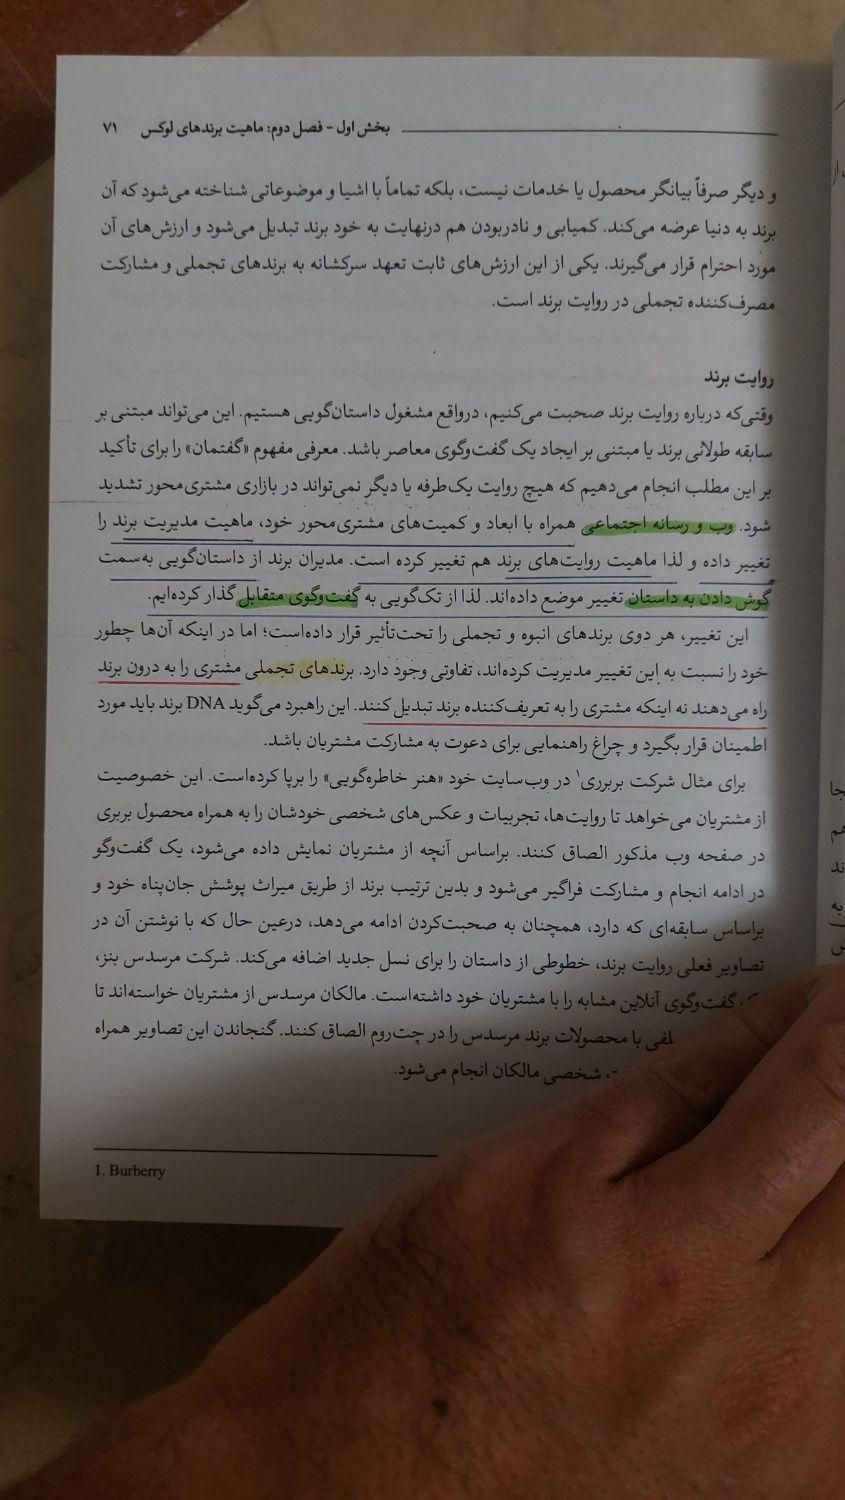 بخش اول - فصل دوم: ماهیت برندهای لوکس ۷۱
و دیگر صرفاً بیانگر محصول یا خدمات نیست، بلکه تماماً با اشیا و موضوعاتی شناخته می‌شود که آن
برند به دنیا عرضه می‌کند. کمیابی و نادربودن هم درنهایت به خود برند تبدیل می‌شود و ارزش‌های آن
مورد احترام قرار می‌گیرند. یکی از این ارزش‌های ثابت تعهد سرکشانه به برندهای تجملی و مشارکت
مصرف‌کننده تجملی در روایت برند است.
روایت برند
وقتی‌که درباره روایت برند صحبت می‌کنیم، درواقع مشغول داستان‌گویی هستیم. این می‌تواند مبتنی بر
سابقه طولانی برند یا مبتنی بر ایجاد یک گفت‌وگوی معاصر باشد. معرفی مفهوم «گفتمان» را برای تأکید
بر این مطلب انجام می‌دهیم که هیچ روایت یک‌طرفه یا دیگر نمی‌تواند در بازاری مشتری‌محور تشدید
شود. وب و رسانه اجتماعی همراه با ابعاد و کمیت‌های مشتری‌محور خود، ماهیت مدیریت برند را
تغییر داده و لذا ماهیت روایت‌های برند هم تغییر کرده است. مدیران برند از داستان‌گویی به‌سمت
گوش دادن به داستان تغییر موضع داده‌اند. لذا از تک‌گویی به گفت‌وگوی متقابل گذار کرده‌ایم.
این تغییر، هر دوی برندهای انبوه و تجملی را تحت‌تأثیر قرار داده‌است؛ اما در اینکه آن‌ها چطور
خود را نسبت به این تغییر مدیریت کرده‌اند، تفاوتی وجود دارد. برندهای تجملی مشتری را به درون برند
راه می‌دهند نه اینکه مشتری را به تعریف‌کننده برند تبدیل کنند. این راهبرد می‌گوید DNA برند باید مورد
اطمینان قرار بگیرد و چراغ راهنمایی برای دعوت به مشارکت مشتریان باشد.
برای مثال شرکت بربرری۱ در وب‌سایت خود «هنر خاطره‌گویی» را برپا کرده‌است. این خصوصیت
از مشتریان می‌خواهد تا روایت‌ها، تجربیات و عکس‌های شخصی خودشان را به همراه محصول بربری
در صفحه وب مذکور الصاق کنند. براساس آنچه از مشتریان نمایش داده می‌شود، یک گفت‌وگو
در ادامه انجام و مشارکت فراگیر می‌شود و بدین ترتیب برند از طریق میراث پوشش جان‌پناه خود و
براساس سابقه‌ای که دارد، همچنان به صحبت‌کردن ادامه می‌دهد، درعین حال که با نوشتن آن در
تصاویر فعلی روایت برند، خطوطی از داستان را برای نسل جدید اضافه می‌کند. شرکت مرسدس بنز،
گفت‌وگوی آنلاین مشابه را با مشتریان خود داشته‌است. مالکان مرسدس از مشتریان خواسته‌اند تا
با محصولات برند مرسدس را در چت‌روم الصاق کنند. گنجاندن این تصاویر همراه
شخصی مالکان انجام می‌شود.
1. Burberry